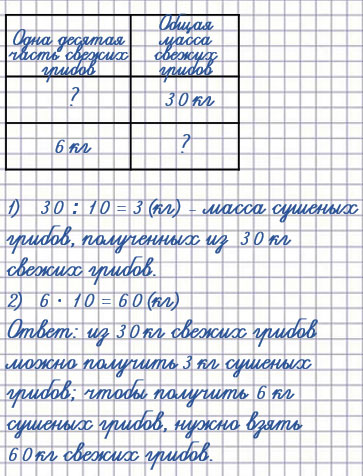 Одна десятая
часть свежих
грибов
Общая
масса
свежих
грибов
?
30 кг
6 кг
?
1) 30 : 10 = 3 (кг) - масса сушеных
грибов, полученных из 30 кг
свежих грибов.
2) 6 · 10 = 60 (кг)
Ответ: из 30 кг свежих грибов
можно получить 3 кг сушеных
грибов; чтобы получить 6 кг
сушеных грибов, нужно взять
60 кг свежих грибов.